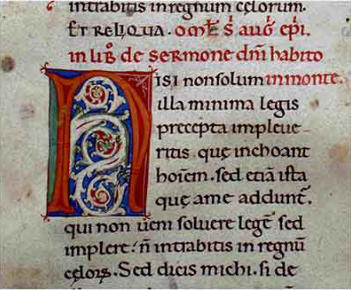 intrabitis in regnum celorum.
ET RELIQUA. Omel. s. aug. epi.
in lib. de sermone dni habito
NISI non solum in monte.
illa minima legis
precepta impleue
ritis. quę inchoant
hoiem. sed etiā ista
quę a me addunt.
qui non ueni soluere legē sed
implere. n̄ intrabitis in regnū
cęlorz. Sed dicis michi. si de